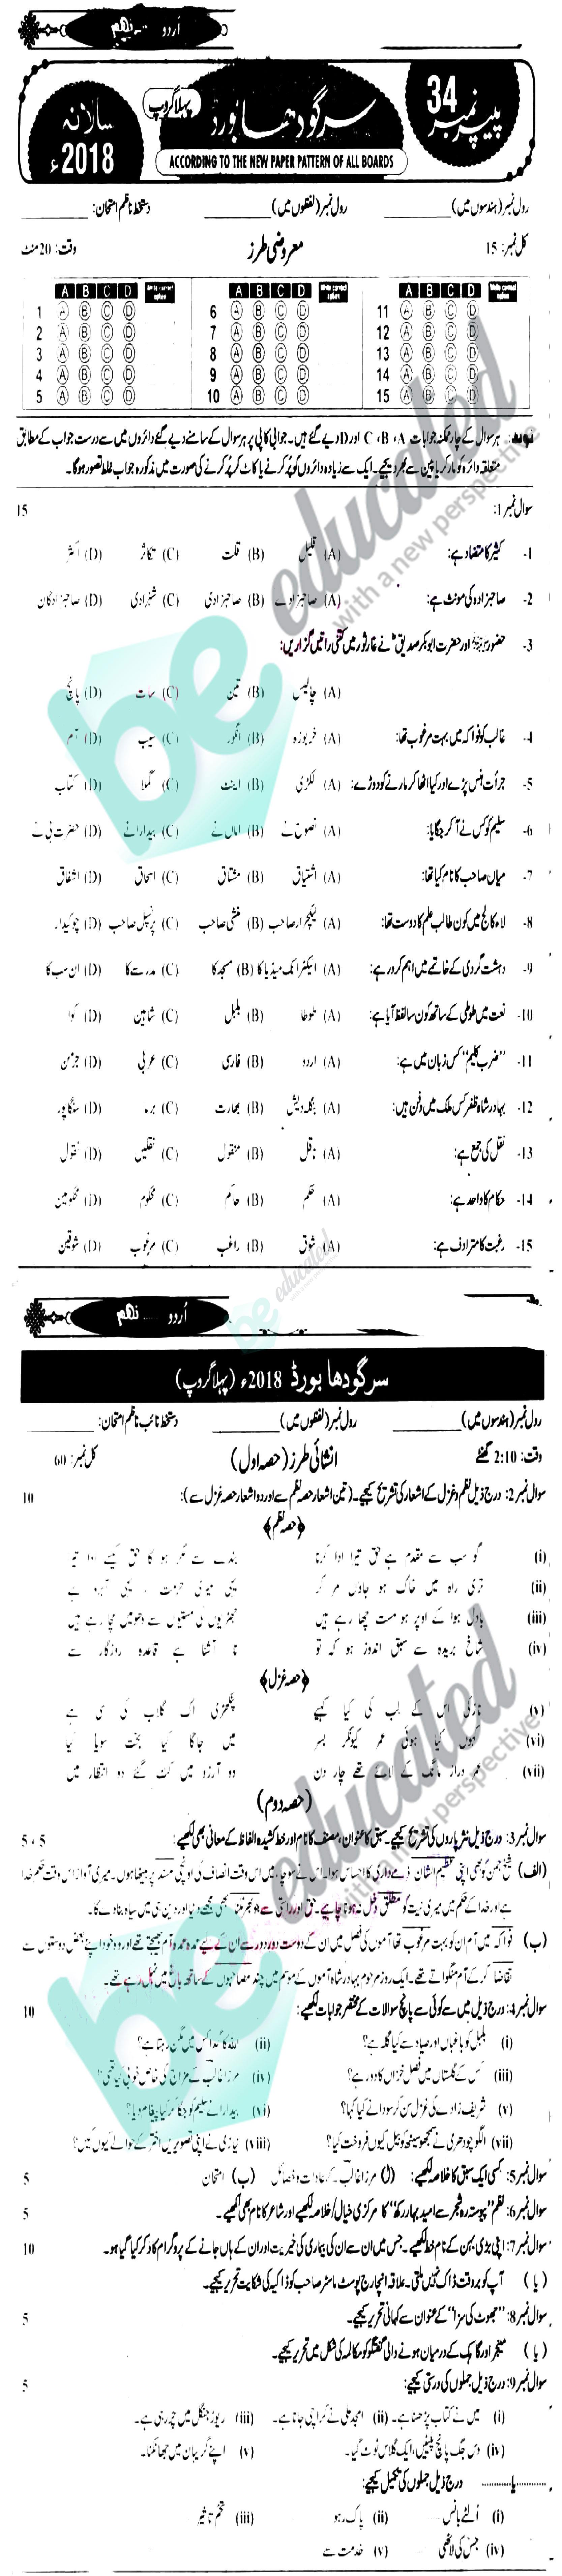 اُردو ۔۔۔۔ نہم
پیپر نمبر 34
سرگودھا بورڈ
پہلا گروپ
سالانہ 2018ء
ACCORDING TO THE NEW PAPER PATTERN OF ALL BOARDS
رول نمبر (ہندسوں میں) ________ رول نمبر (لفظوں میں) ________ دستخط ناظم امتحان: ________
کل نمبر: 15 معروضی طرز وقت: 20 منٹ
A B C D Write correct option A B C D Write correct option A B C D Write correct option
1 A B C D 6 A B C D 11 A B C D
2 A B C D 7 A B C D 12 A B C D
3 A B C D 8 A B C D 13 A B C D
4 A B C D 9 A B C D 14 A B C D
5 A B C D 10 A B C D 15 A B C D
نوٹ: ہر سوال کے چار ممکنہ جوابات A، B، C اور D دیے گئے ہیں۔ جوابی کاپی پر ہر سوال کے سامنے دیے گئے دائروں میں سے درست جواب کے مطابق
متعلقہ دائرہ کو مارکر یا پین سے بھر دیجیے۔ ایک سے زیادہ دائروں کو پُر کرنے یا کاٹ کر پُر کرنے کی صورت میں مذکورہ جواب غلط تصور ہوگا۔
سوال نمبر 1: 15
1- کثیر کا متضاد ہے: (A) قلیل (B) قلت (C) تکاثر (D) اکثر
2- صاحبزادہ کی مونث ہے: (A) صاحبزادے (B) صاحبزادی (C) شہزادی (D) صاحبزادگان
3- حضورﷺ اور حضرت ابوبکر صدیقؓ نے غارِ ثور میں کتنی راتیں گزاریں:
(A) چالیس (B) تین (C) سات (D) پانچ
4- غالب کو فواکہ میں بہت مرغوب تھا: (A) خربوزہ (B) انگور (C) سیب (D) آم
5- جرأت ہنس پڑے اور کیا اٹھا کر مارنے کو دوڑے: (A) لکڑی (B) اینٹ (C) گملا (D) کتاب
6- سلیم کو کس نے آکر جگایا: (A) نصوح نے (B) اماں نے (C) بیدارا نے (D) حضرت بی نے
7- میاں صاحب کا نام کیا تھا: (A) اشتیاق (B) مشتاق (C) اسحاق (D) اشفاق
8- لاء کالج میں کون طالب علم کا دوست تھا: (A) لیکچرار صاحب (B) منشی صاحب (C) پرنسپل صاحب (D) چوکیدار
9- دہشت گردی کے خاتمے میں اہم کردار ہے: (A) الیکٹرانک میڈیا کا (B) مسجد کا (C) مدرسے کا (D) ان سب کا
10- نعت میں طوطی کے ساتھ کون سا لفظ آیا ہے: (A) طوطا (B) بلبل (C) شاہین (D) کوا
11- "ضربِ کلیم" کس زبان میں ہے: (A) اردو (B) فارسی (C) عربی (D) جرمن
12- بہادر شاہ ظفر کس ملک میں دفن ہیں: (A) بنگلہ دیش (B) بھارت (C) برما (D) سنگاپور
13- نقل کی جمع ہے: (A) ناقل (B) منقول (C) نقلیں (D) نقول
14- حکام کا واحد ہے: (A) حکم (B) حاکم (C) محکوم (D) محکومین
15- رغبت کا مترادف ہے: (A) شوق (B) راغب (C) مرغوب (D) شوقین
اُردو ۔۔۔۔ نہم
سرگودھا بورڈ 2018ء (پہلا گروپ)
رول نمبر (ہندسوں میں) ________ رول نمبر (لفظوں میں) ________ دستخط نائب ناظم امتحان: ________
وقت: 2:10 گھنٹے انشائی طرز (حصہ اول) کل نمبر: 60
سوال نمبر 2: درج ذیل نظم و غزل کے اشعار کی تشریح کیجیے۔ (تین اشعار حصہ نظم سے اور دو اشعار حصہ غزل سے): 10
﴿حصہ نظم﴾
(i) گو سب سے مقدم ہے حق تیرا ادا کرنا بندے سے مگر ہو گا حق کیسے ادا تیرا
(ii) تری راہ میں خاک ہو جاؤں مر کر یہی میری حرمت ، یہی آبرو ہے
(iii) بادل ہوا کے اوپر ہو مست چھا رہے ہیں جھڑیوں کی مستیوں سے دھومیں مچا رہے ہیں
(iv) شاخِ بریدہ سے سبق اندوز ہو کہ تو نا آشنا ہے قاعدہ روزگار سے
﴿حصہ غزل﴾
(v) نازکی اس کے لب کی کیا کہیے پنکھڑی اک گلاب کی سی ہے
(vi) کہوں کیا ہوئی عمر کیونکر بسر میں جاگا کیا بخت سویا کیا
(vii) عمرِ دراز مانگ کے لائے تھے چار دن دو آرزو میں کٹ گئے دو انتظار میں
(حصہ دوم)
سوال نمبر 3: درج ذیل نثرپاروں کی تشریح کیجیے۔ سبق کا عنوان، مصنف کا نام اور خط کشیدہ الفاظ کے معانی بھی لکھیے: 5 ، 5
(الف) شیخ جمن کو بھی اپنی عظیم الشان ذمے داری کا احساس ہوا۔ اس نے سوچا، میں اس وقت انصاف کی اونچی مسند پر بیٹھا ہوں۔ میری آواز اس وقت حکمِ خدا
ہے اور خدا کے حکم میں میری نیت کو مطلق دخل نہ ہونا چاہیے۔ حق اور راستی سے جَو بھر ٹلنا بھی مجھے دنیا اور دین ہی میں سیاہ بنا دے گا۔
(ب) فواکہ میں آم ان کو بہت مرغوب تھا۔ آموں کی فصل میں ان کے دوست دور دور سے ان کے لیے عمدہ عمدہ آم بھیجتے تھے اور وہ خود اپنے بعض دوستوں سے
تقاضا کرکے آم منگواتے تھے۔ ایک روز مرحوم بہادر شاہ آموں کے موسم میں چند مصاحبوں کے ساتھ باغ میں ٹہل رہے تھے۔
سوال نمبر 4: درج ذیل میں سے کوئی سے پانچ سوالات کے مختصر جوابات لکھیے: 10
(i) بلبل کو باغباں اور صیاد سے کیا گلہ ہے؟ (ii) اللہ کا گدا کس میں مگن رہتا ہے؟
(iii) کس کے گلستاں میں فصلِ خزاں کا دور ہے؟ (iv) مرزا غالب کے مزاج کی خاص خوبی کیا تھی؟
(v) شریف زادے کی غزل سن کر سودا نے کیا کہا؟ (vi) بیدارا نے سلیم کو جگا کر کیا پیغام دیا؟
(vii) الگو چودھری نے سمجھو سیٹھ کو بیل کیوں فروخت کیا؟ (viii) نیازی نے اپنی تصویریں اختر کے حوالے کیوں کیں؟
سوال نمبر 5: کسی ایک سبق کا خلاصہ لکھیے: (ا) مرزا غالب کے عادات و خصائل (ب) امتحان 5
سوال نمبر 6: نظم "پیوستہ رہ شجر سے امیدِ بہار رکھ" کا مرکزی خیال/خلاصہ لکھیے اور شاعر کا نام بھی لکھیے۔ 5
سوال نمبر 7: اپنی بڑی بہن کے نام خط لکھیے۔ جس میں ان سے ان کی بیماری کی خیریت اور ان کے ہاں جانے کے پروگرام کا ذکر کیا گیا ہو۔ 10
(یا) آپ کو بروقت ڈاک نہیں ملتی۔ علاقہ انچارج پوسٹ ماسٹر صاحب کو ڈاکیہ کی شکایت تحریر کیجیے۔
سوال نمبر 8: "جھوٹ کی سزا" کے عنوان سے کہانی تحریر کیجیے۔ 5
(یا) منیجر اور گاہک کے درمیان ہونے والی گفتگو کو مکالمہ کی شکل میں تحریر کیجیے۔
سوال نمبر 9: درج ذیل جملوں کی درستی کیجیے: 5
(i) میں نے کتاب پڑھنا ہے۔ (ii) امجد علی نے کراچی جانا ہے۔ (iii) ریوڑ جنگل میں چر رہی ہے۔
(iv) دس جگ پانچ پلیٹیں، ایک گلاس ٹوٹ گیا۔ (v) اپنے گریبان میں جھانکنا۔
۔۔۔۔۔۔یا۔۔۔۔۔۔ درج ذیل جملوں کی تکمیل کیجیے:
(i) اُلٹے بانس (ii) پاک رہو (iii) تخم تاثیر
(iv) جس کی لاٹھی (v) خدمت سے
be educated
with a new perspective